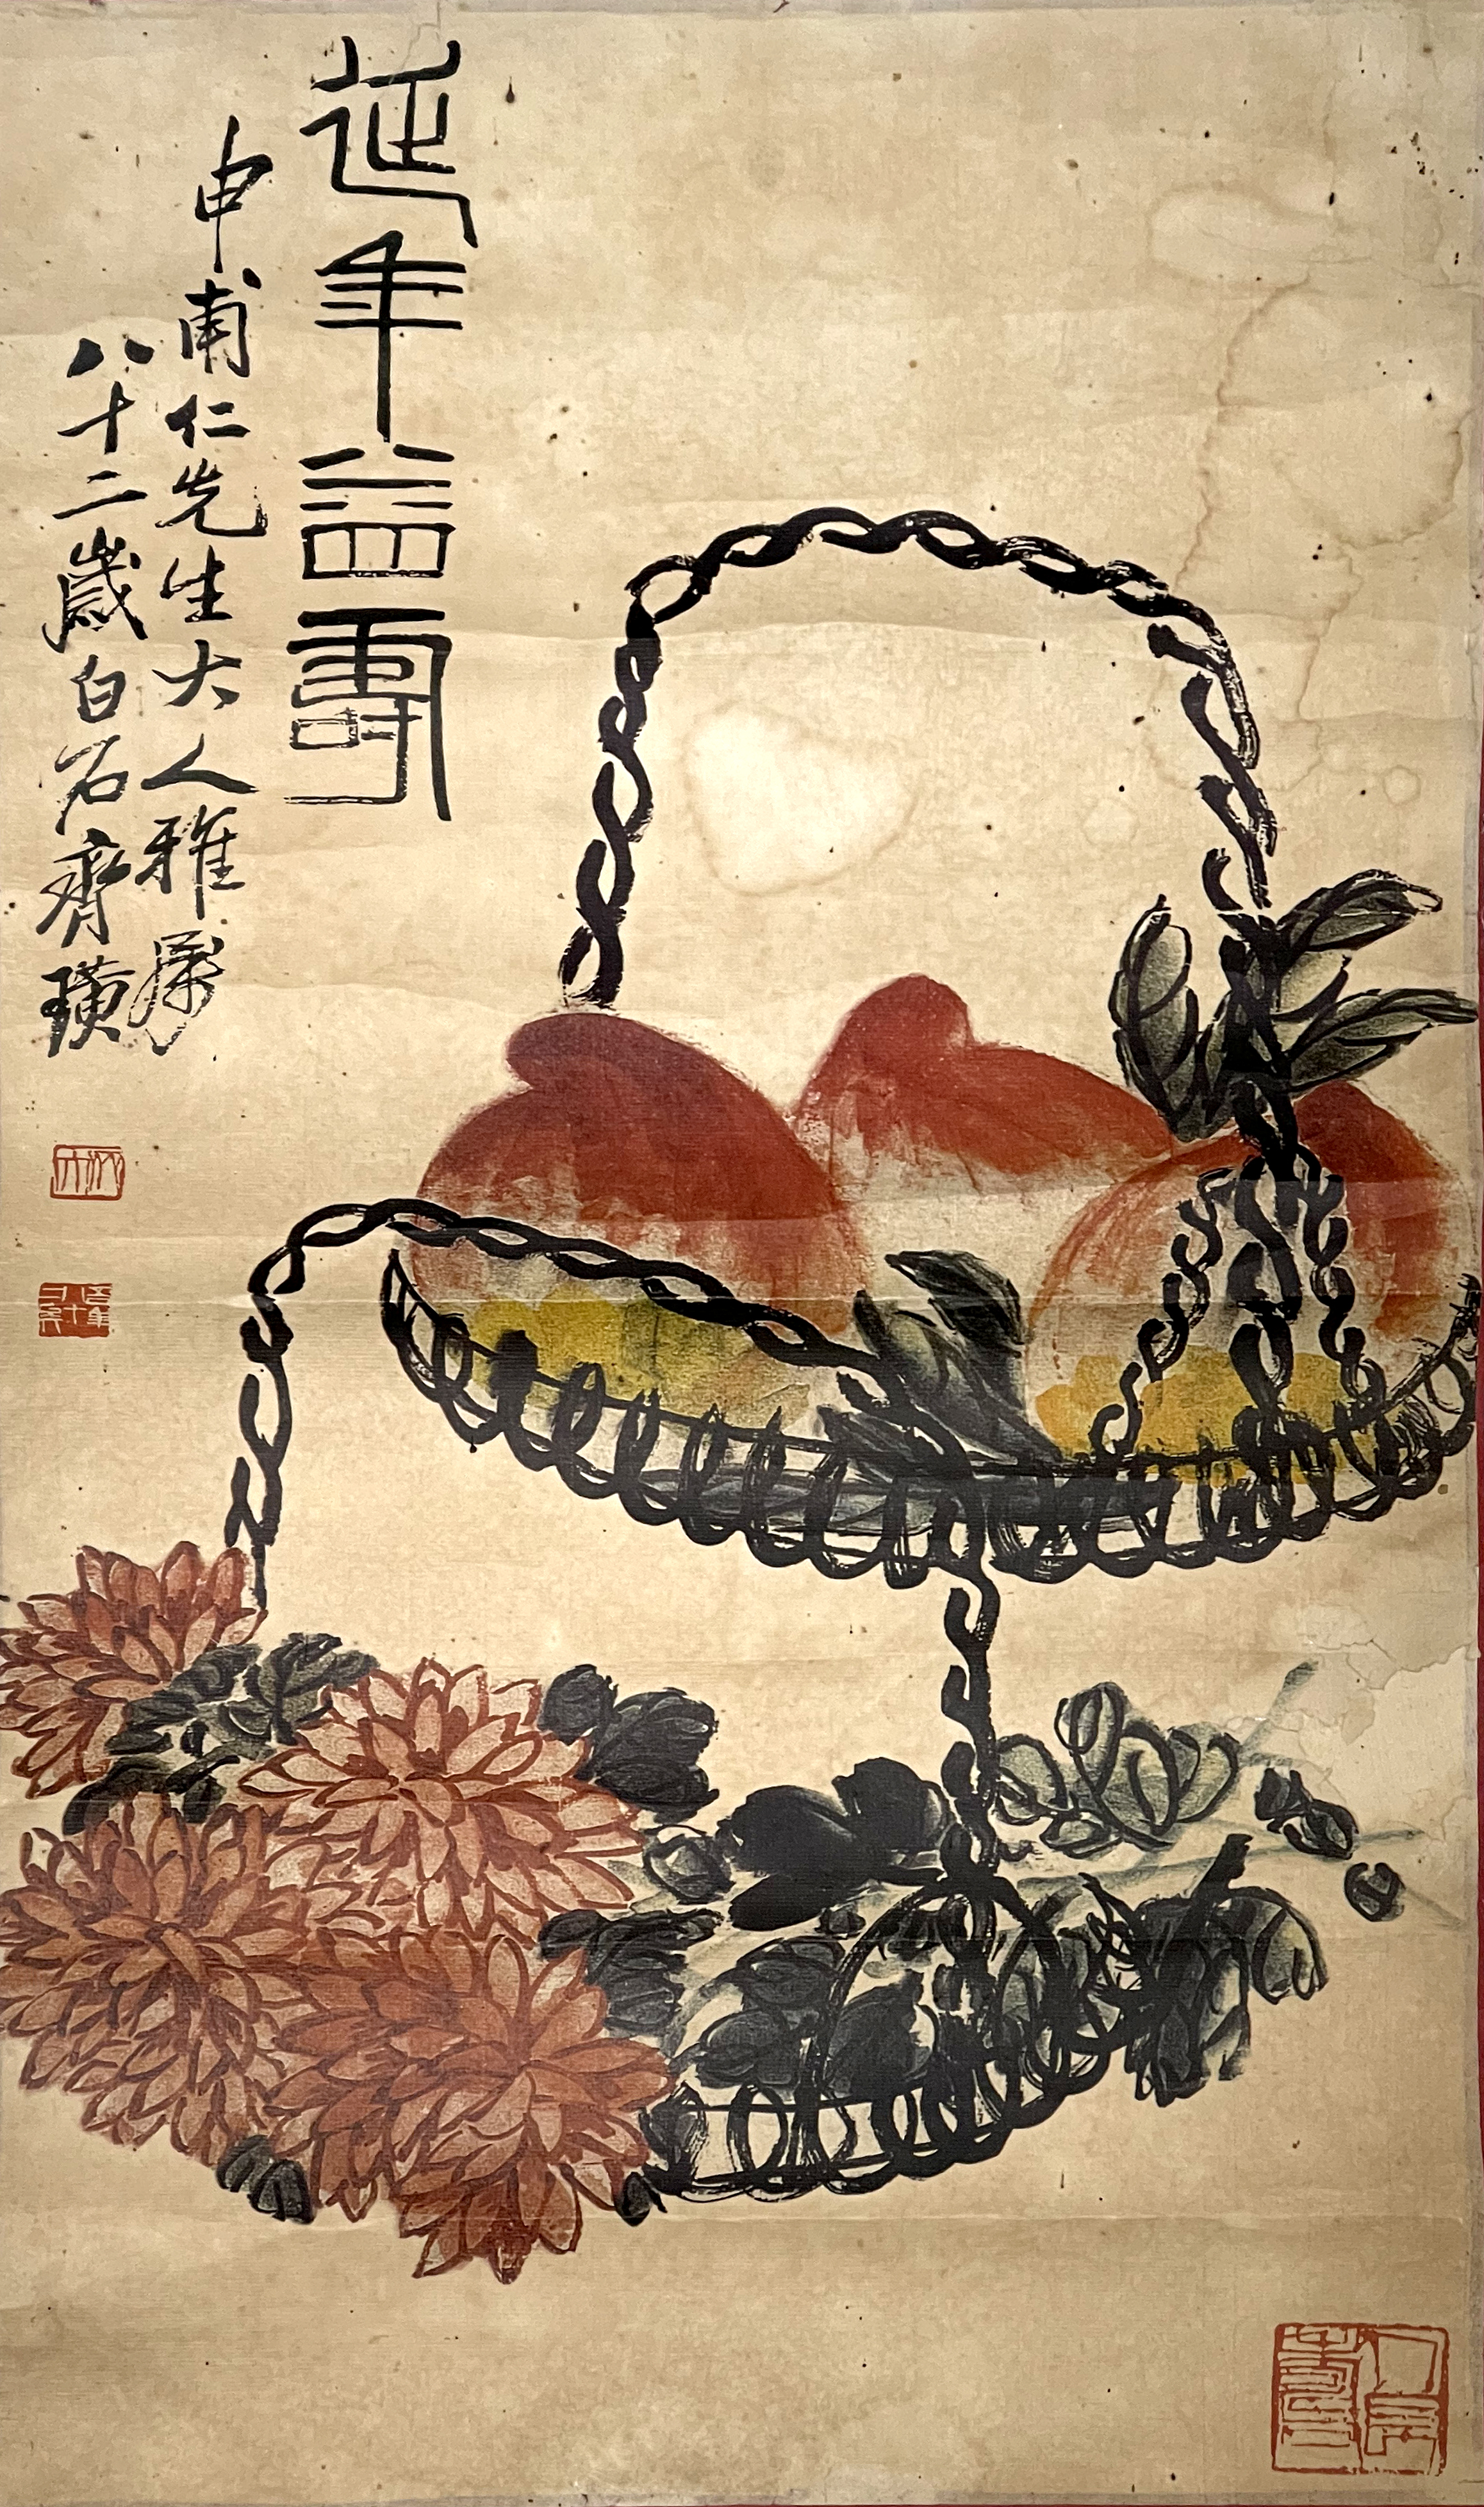 延年益壽
申甫仁先生大人雅屬
八十二歲白石齊璜